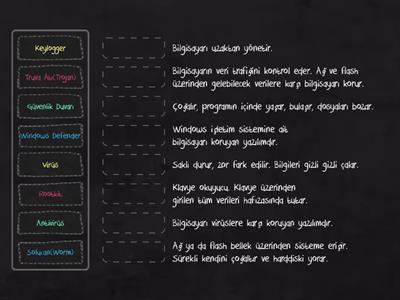 Keylogger
Bilgisayarı uzaktan yönetir.
Truva Atı(Trojan)
Bilgisayarın veri trafiğini kontrol eder. Ağ ve flash
üzerinden gelebilecek verilere karşı bilgisayarı korur.
Güvenlik Duvarı
Çoğalır, programın içinde yaşar, bulaşır, dosyaları bozar.
Windows Defender
Windows işletim sistemine ait
bilgisayarı koruyan yazılımdır.
Virüs
Saklı durur, zor fark edilir. Bilgileri gizli gizli çalar.
Rootkit
Klavye okuyucu. Klavye üzerinden
girilen tüm verileri hafızasında tutar.
Antivirüs
Bilgisayarı virüslere karşı koruyan yazılımdır.
Solucan(Worm)
Ağ ya da flash bellek üzerinden sisteme erişir.
Sürekli kendini çoğaltır ve harddiski yorar.